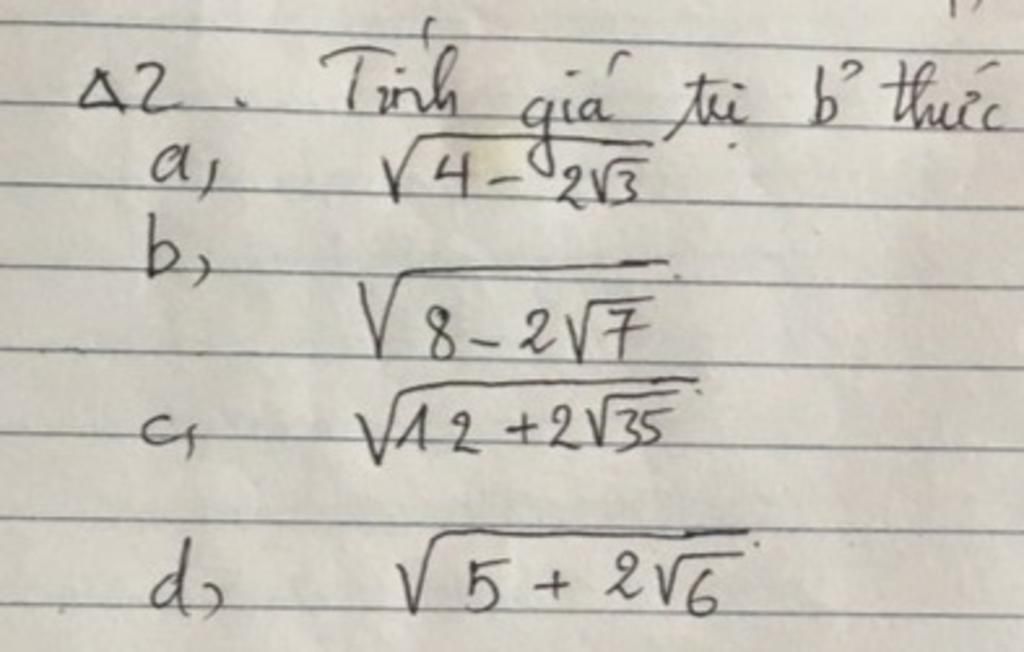 Δ2. Tính giá trị b² thức
a, √(4 - 2√3)
b,
√(8 - 2√7)
c, √(12 + 2√35)
d, √(5 + 2√6)